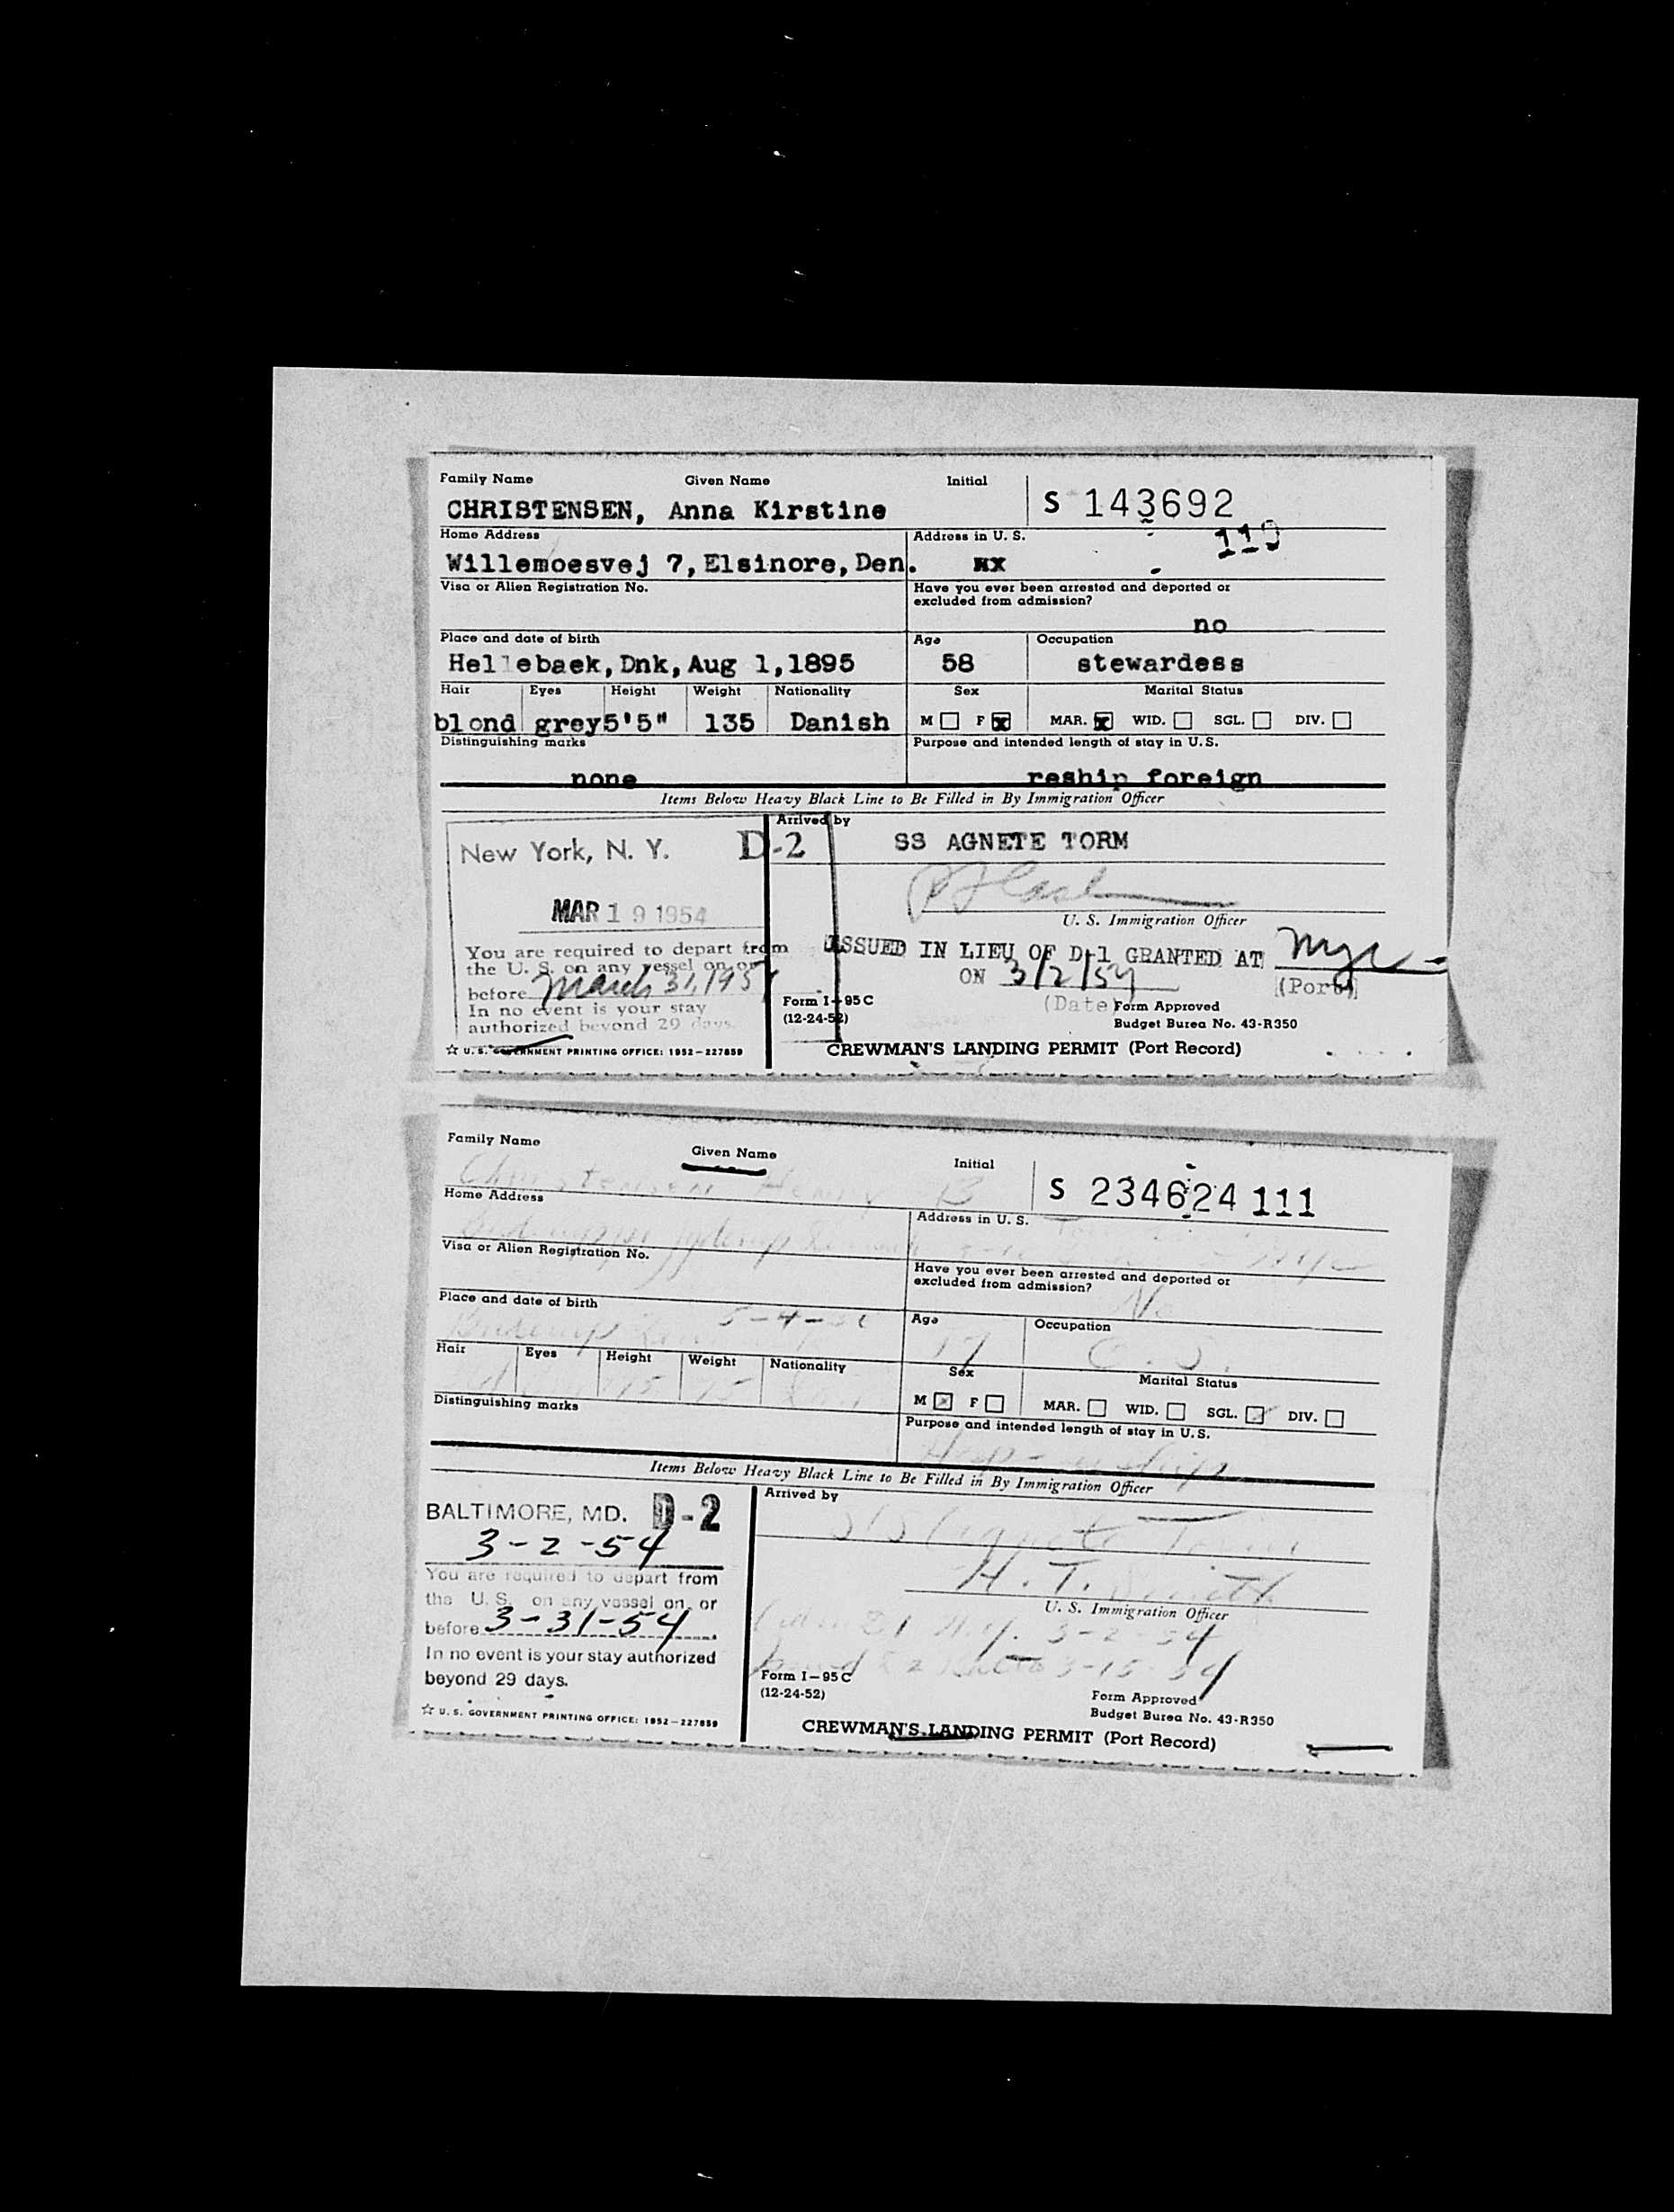 Family Name Given Name Initial
CHRISTENSEN, Anna Kirstine S 143692
Home Address Address in U. S. 119
Willemoesvej 7, Elsinore, Den.
Visa or Alien Registration No. Have you ever been arrested and deported or
excluded from admission?
no
Place and date of birth Age Occupation
Hellebaek, Dnk, Aug 1, 1895 58 stewardess
Hair Eyes Height Weight Nationality Sex Marital Status
blond grey 5'5" 135 Danish M F x MAR. x WID. SGL. DIV.
Distinguishing marks Purpose and intended length of stay in U.S.
none reship foreign
Items Below Heavy Black Line to Be Filled in By Immigration Officer
Arrived by
New York, N. Y. D-2 SS AGNETE TORM
MAR 19 1954
U. S. Immigration Officer
You are required to depart from
the U. S. on any vessel on or
before March 31, 195
In no event is your stay
authorized beyond 29 days.
ISSUED IN LIEU OF D-1 GRANTED AT nyc
ON 3/2/54 (Port)
(Date)
Form I-95C
(12-24-52)
Form Approved
Budget Burea No. 43-R350
☆ U. S. GOVERNMENT PRINTING OFFICE: 1952-227859
CREWMAN'S LANDING PERMIT (Port Record)
Family Name Given Name Initial
Christensen Henry B S 234624 111
Home Address Address in U. S.
Visa or Alien Registration No. Have you ever been arrested and deported or
excluded from admission?
No
Place and date of birth Age Occupation
5-4- 17
Hair Eyes Height Weight Nationality Sex Marital Status
M F MAR. WID. SGL. DIV.
Distinguishing marks Purpose and intended length of stay in U.S.
Items Below Heavy Black Line to Be Filled in By Immigration Officer
Arrived by
BALTIMORE, MD. D-2 S/S Agnete Torm
3-2-54
H. T. Smith
U. S. Immigration Officer
You are required to depart from
the U. S. on any vessel on or
before 3-31-54.
In no event is your stay authorized
beyond 29 days.
N.Y. 3-2-54
3-15-54
Form I-95C
(12-24-52)
Form Approved
Budget Burea No. 43-R350
☆ U. S. GOVERNMENT PRINTING OFFICE: 1952-227859
CREWMAN'S LANDING PERMIT (Port Record)